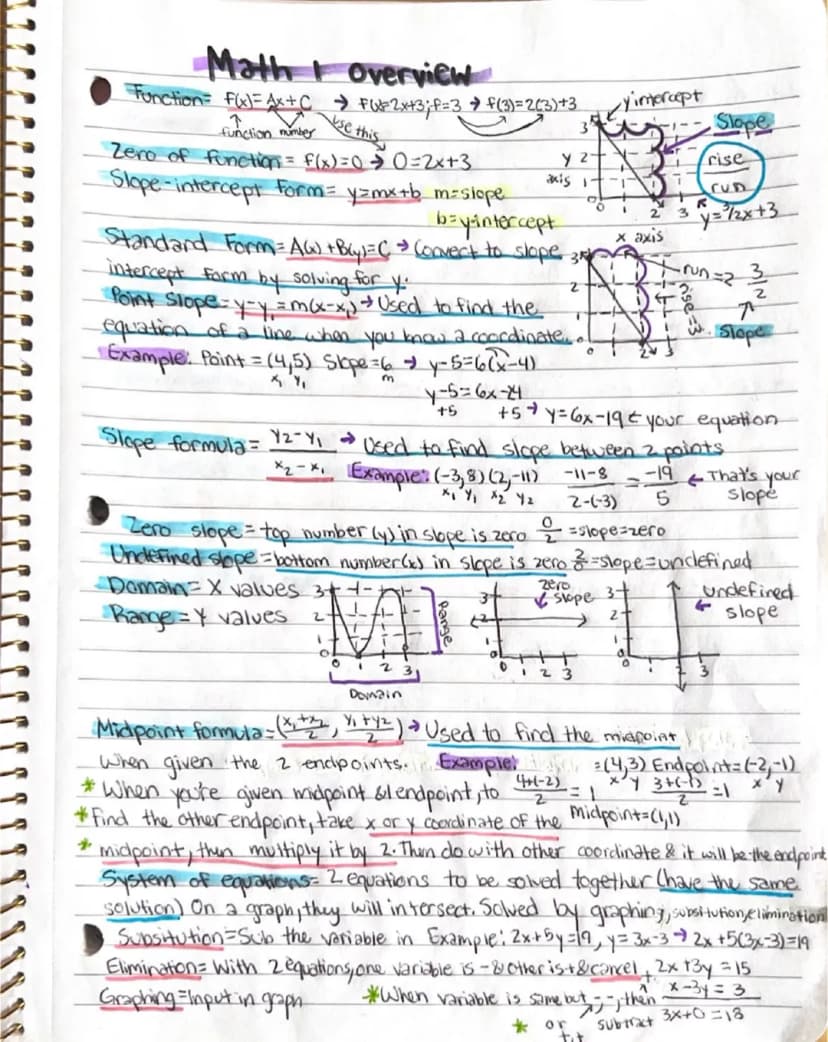 Math 1 overview
Function= f(x)=Ax+C → f(x)=2x+3; f=3 → f(3)=2(3)+3
function number use this
y intercept
Slope
3
y 2
axis 1
0 1 2 3
x axis
rise
run
y=3/2x+3
Zero of function= f(x)=0 → 0=2x+3
Slope-intercept form= y=mx+b m=slope
b=y-intercept
Standard Form=A(x)+B(y)=C → Convert to slope
intercept form by solving for y.
Point Slope=y-y₁=m(x-x₁) → Used to find the
equation of a line when you know a coordinate.
3
2
1
0 1 2 3
run=2
rise=3
3/2
Slope
Example: Point=(4,5) Slope=6 → y-5=6(x-4)
x₁ y₁ m
y-5=6x-24
+5 +5 → y=6x-19 ← your equation
Slope formula= y2-y₁/x₂-x₁ → Used to find slope between 2 points
Example: (-3,8)(2,-11) -11-8/2-(-3) = -19/5 ← That's your
x₁ y₁ x₂ y₂ slope
Zero slope=top number(y)in slope is zero 0/2=slope=zero
Undefined slope=bottom number(x) in slope is zero 2/0=slope=undefined
Domain= X values
Range= Y values
3
2
1
0 1 2 3
Range
Domain
zero
slope
3
2
1
0 1 2 3
undefined
slope
3
2
1
0 1 3
Midpoint formula=(x₁+x₂/2, y₁+y2/2) → Used to find the midpoint
When given the 2 endpoints. Example: =(4,3) Endpoint=(-2,-1)
x y x y
* When you're given midpoint & 1 endpoint, to 4+(-2)/2=1 3+(-1)/2=1
* Find the other endpoint, take x or y coordinate of the Midpoint=(1,1)
* midpoint, then multiply it by 2. Then do with other coordinate & it will be the endpoint
System of equations= 2 equations to be solved together (have the same
solution) On a graph, they will intersect. Solved by graphing, subsitution, elimination
Subsitution=Sub the variable in Example: 2x+5y=19, y=3x-3 → 2x+5(3x-3)=19
Elimination= With 2 equations, one variable is - & other is + & cancel + 2x+3y=15
x-3y=3
3x+0=18
Graphing=Input in graph *When variable is same but -,-, then
* or +,+ subtract